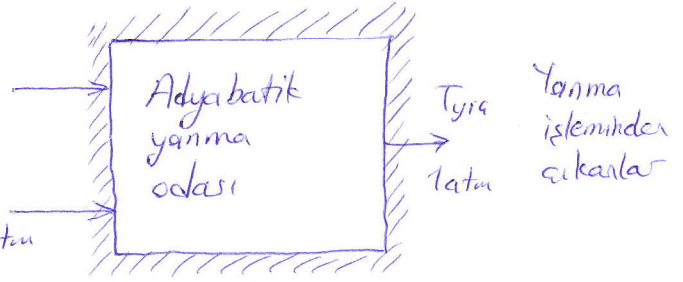 Adyabatik
yanma
odası
Tyra
1atm
Yanma
işleminden
çıkanlar
tm